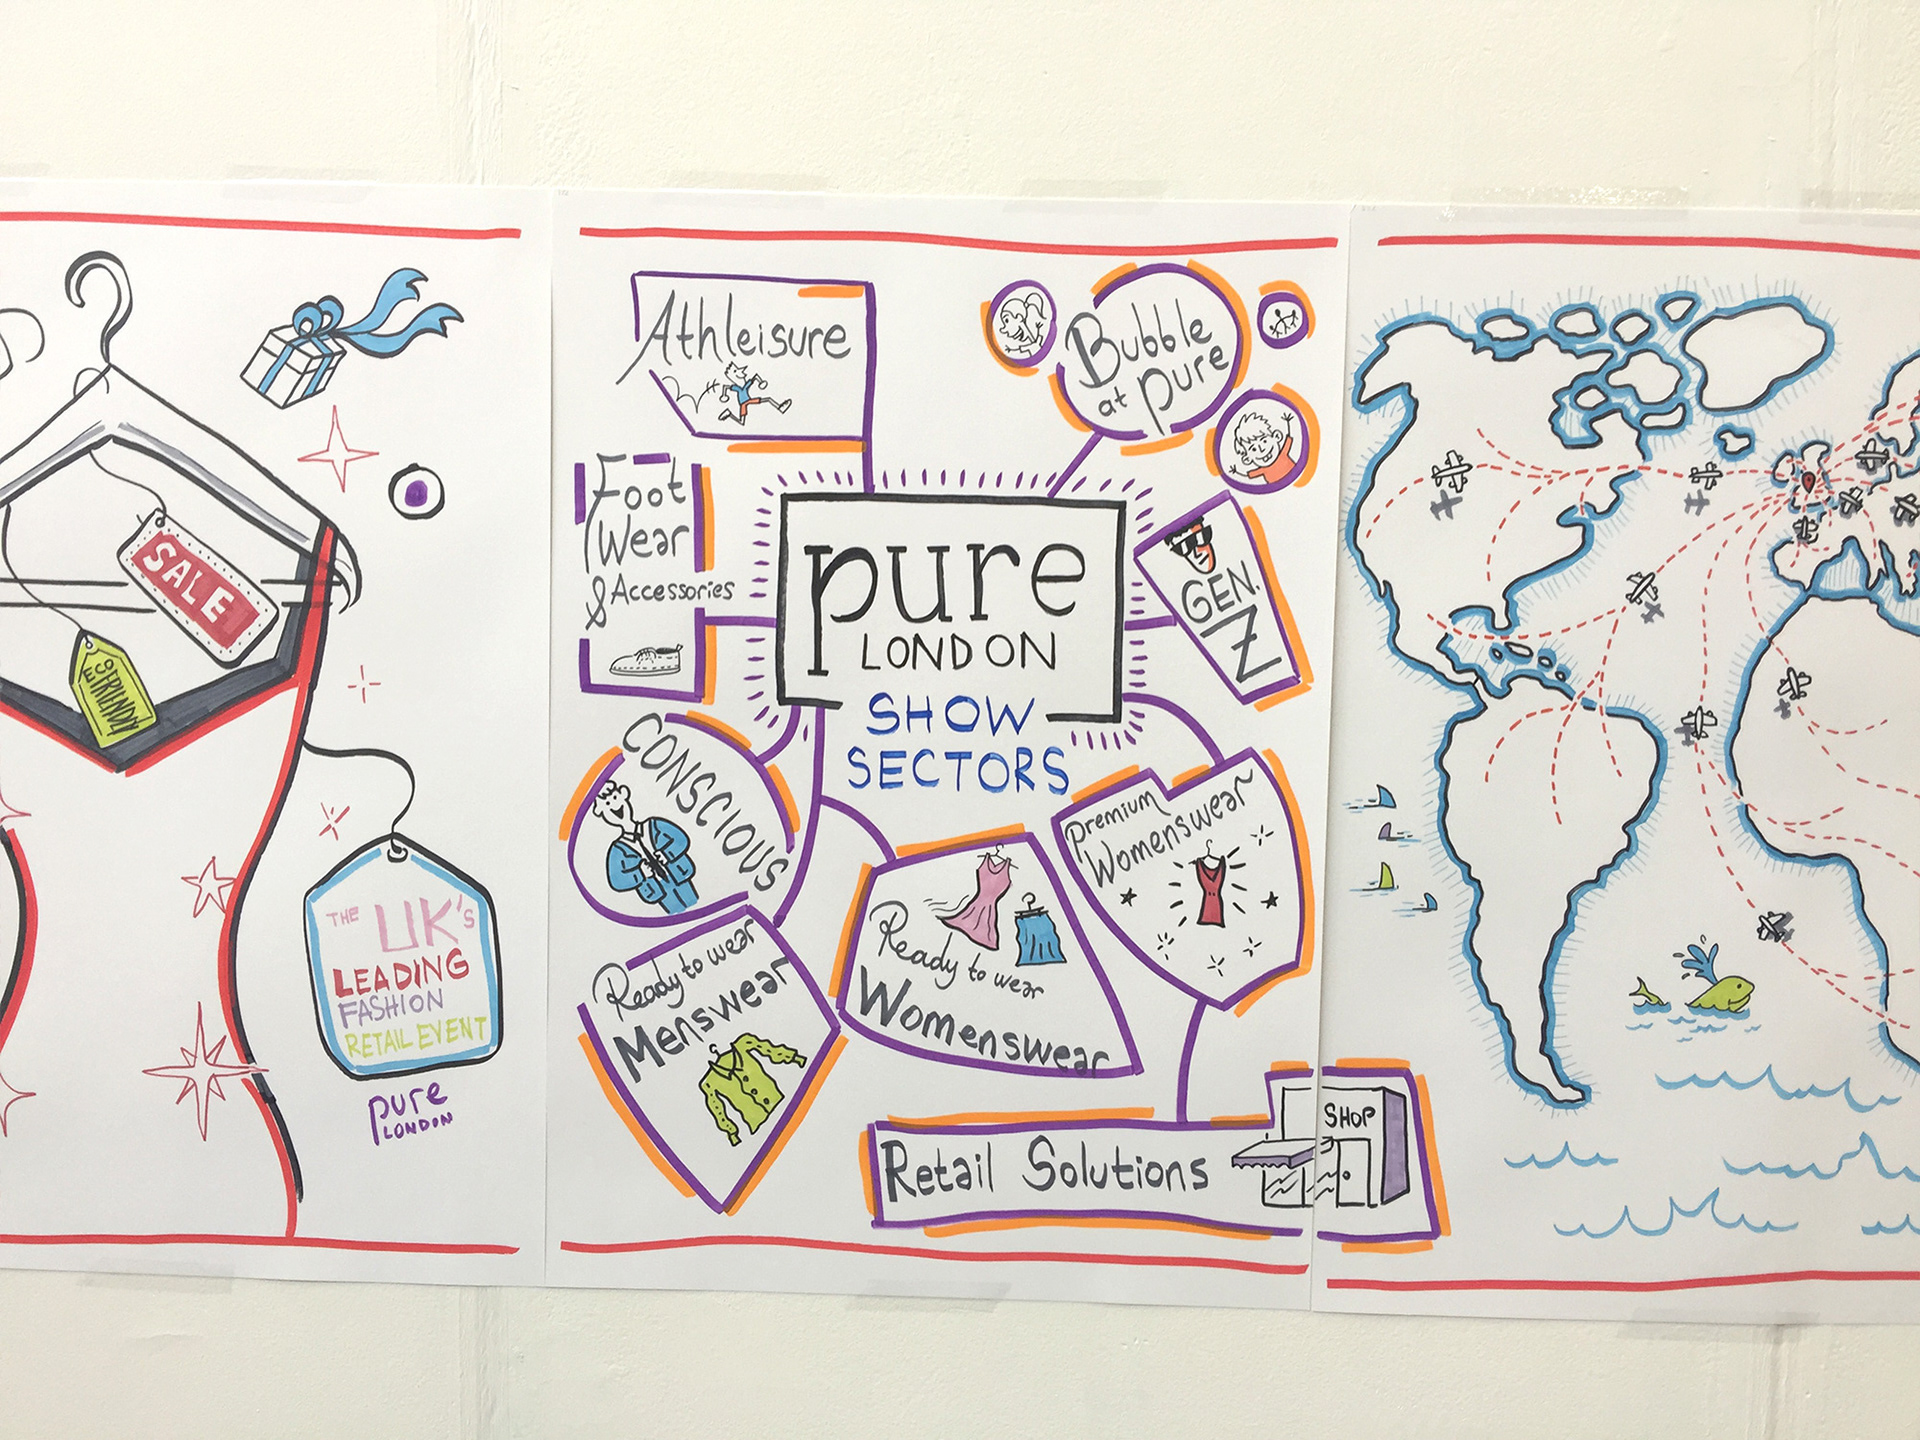 SALE
ECO
FRIENDLY
THE UK's
LEADING
FASHION
RETAIL EVENT
pure
LONDON
Athleisure
Bubble
at pure
Foot
Wear
& Accessories
pure
LONDON
SHOW
SECTORS
GEN.
Z
CONSCIOUS
Premium
Womenswear
Ready to wear
Menswear
Ready to wear
Womenswear
Retail Solutions
SHOP